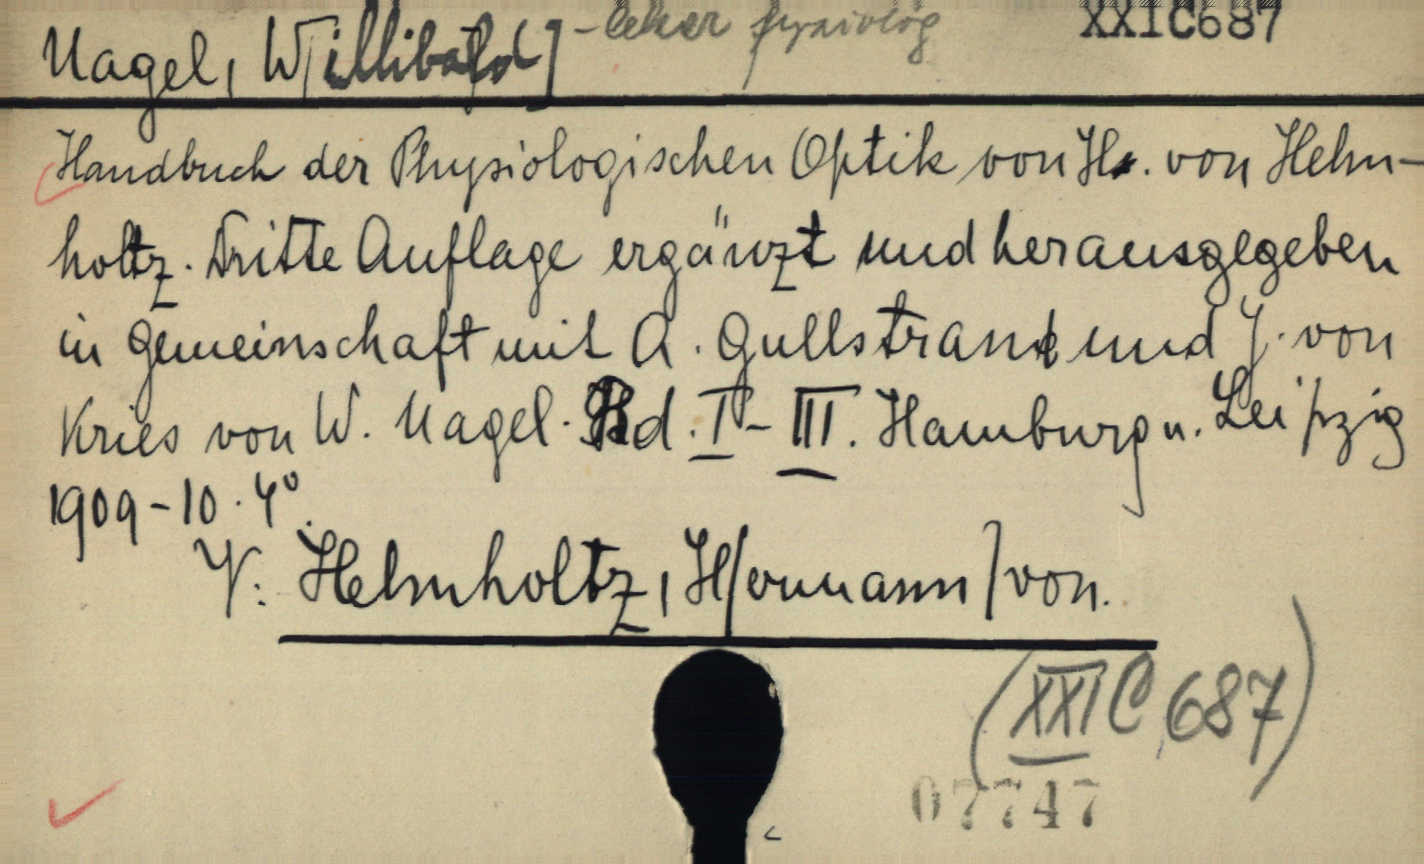 Nagel, W[illibald] - lekar fyziolog XXIC687
Handbuch der Physiologischen Optik von H. von Helm-
holtz. Dritte Auflage ergänzt und herausgegeben
in Gemeinschaft mit A. Gullstrand und J. von
Kries von W. Nagel. Bd. I - III. Hamburg u. Leipzig
1909-10. 4°.
V: Helmholtz, H[ermann] von.
(XXI C 687)
07747